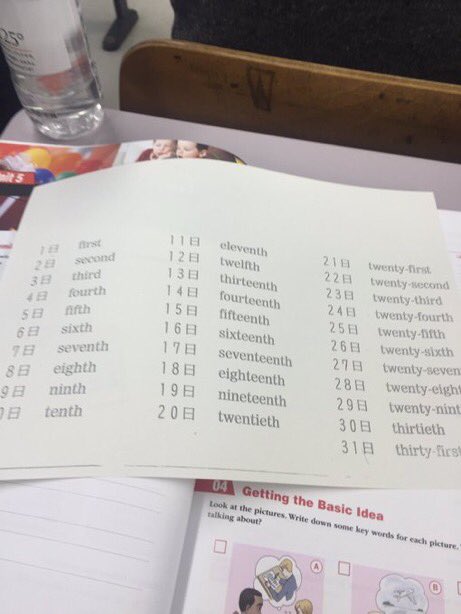 25°
Unit 5
1日 first
2日 second
3日 third
4日 fourth
5日 fifth
6日 sixth
7日 seventh
8日 eighth
9日 ninth
0日 tenth
11日 eleventh
12日 twelfth
13日 thirteenth
14日 fourteenth
15日 fifteenth
16日 sixteenth
17日 seventeenth
18日 eighteenth
19日 nineteenth
20日 twentieth
21日 twenty-first
22日 twenty-second
23日 twenty-third
24日 twenty-fourth
25日 twenty-fifth
26日 twenty-sixth
27日 twenty-seven
28日 twenty-eight
29日 twenty-nint
30日 thirtieth
31日 thirty-first
04 Getting the Basic Idea
Look at the pictures. Write down some key words for each picture.
talking about?
A
B